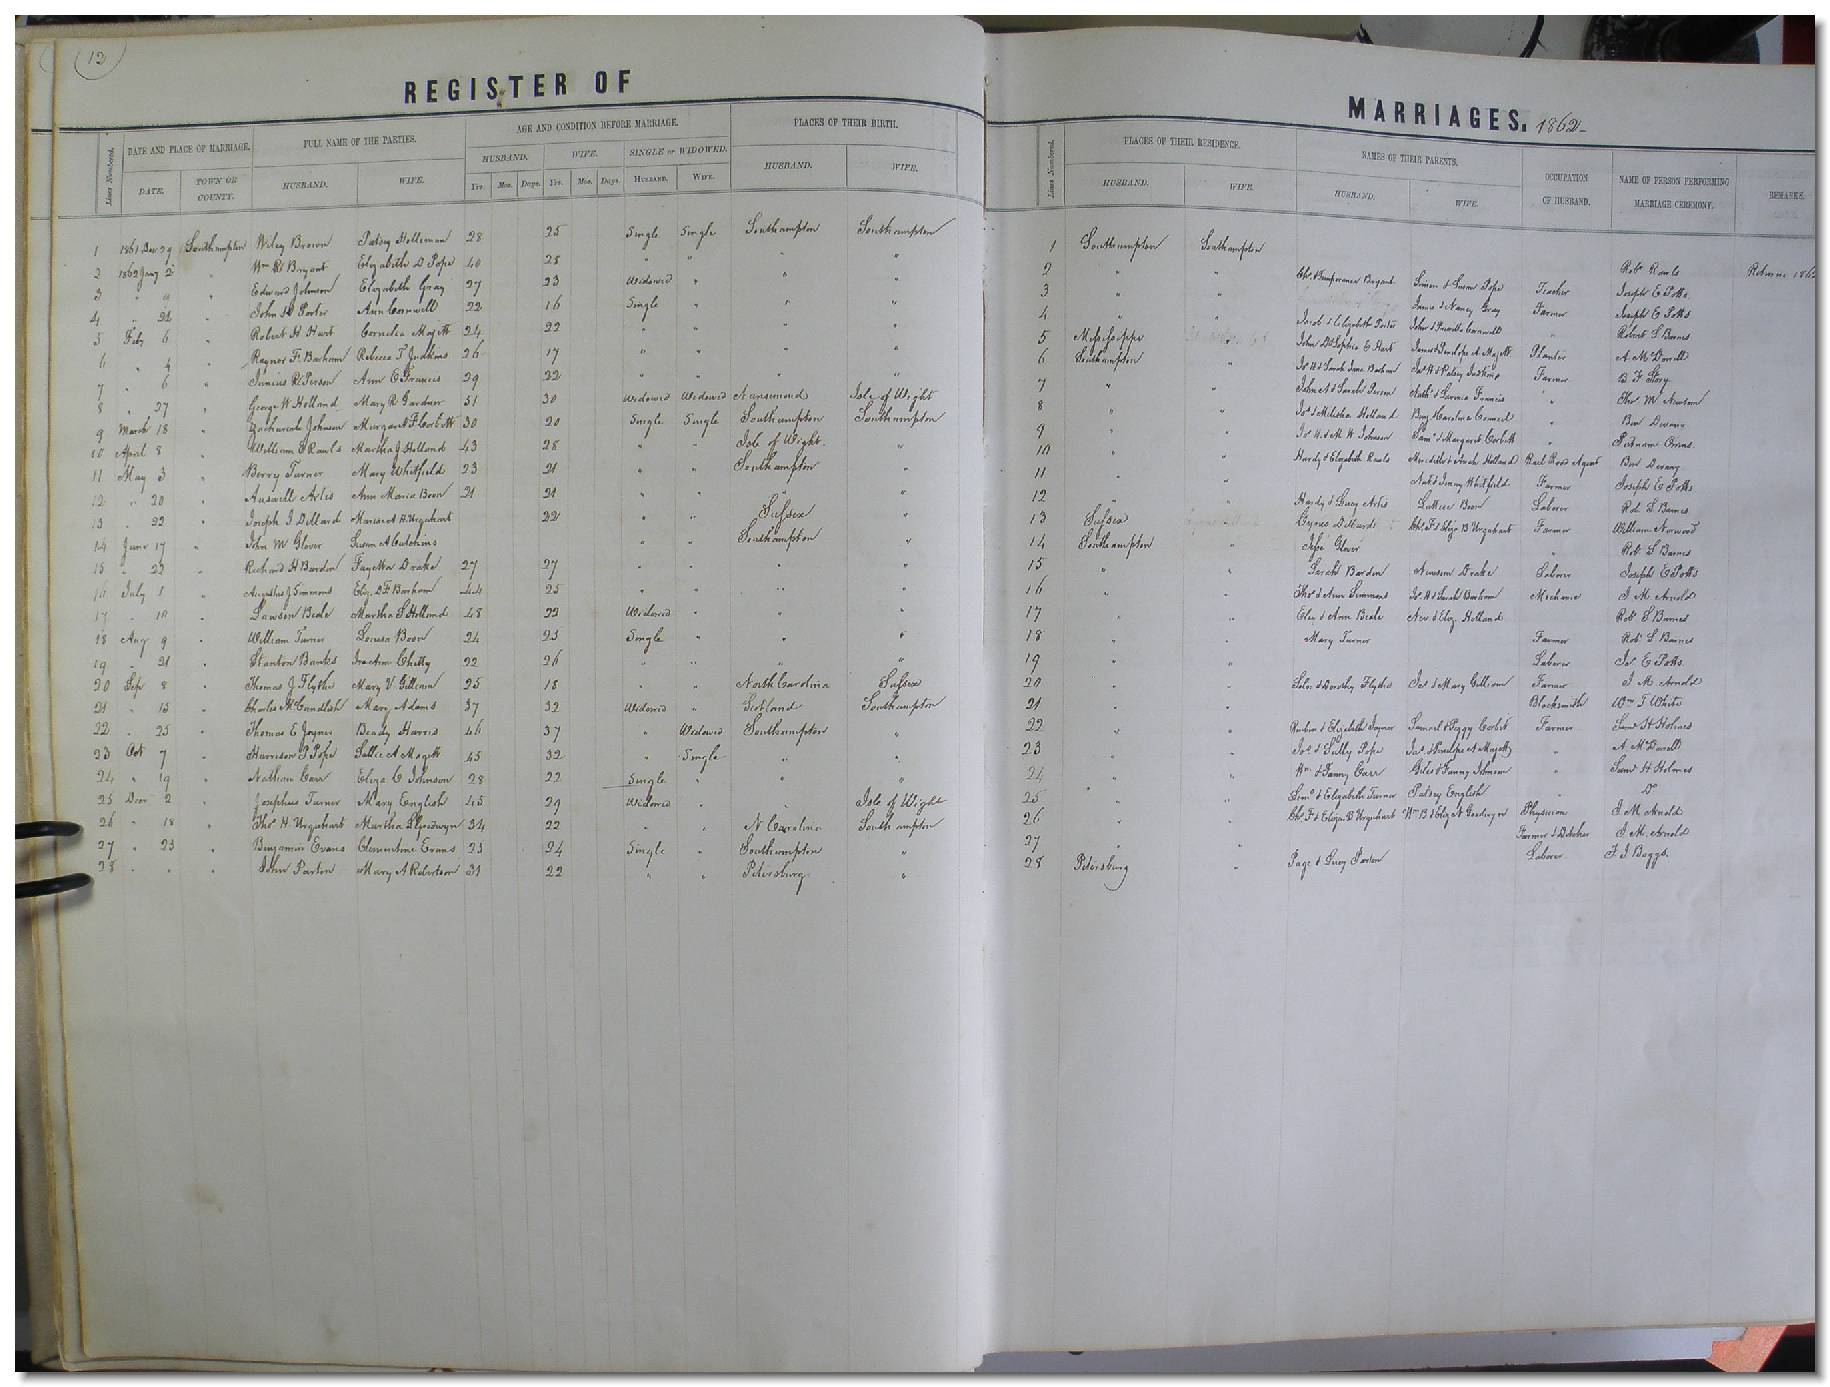 12
REGISTER OF
Lines Numbered.
DATE AND PLACE OF MARRIAGE.
FULL NAME OF THE PARTIES.
AGE AND CONDITION BEFORE MARRIAGE.
PLACES OF THEIR BIRTH.
DATE.
TOWN OR COUNTY.
HUSBAND.
WIFE.
HUSBAND.
WIFE.
SINGLE or WIDOWED.
HUSBAND.
WIFE.
Yrs. Mos. Days. Yrs. Mos. Days. HUSBAND. WIFE.
1 1861 Dec 29 Southampton Wiley Brown Patsey Holleman 28 25 Single Single Southampton Southampton
2 1862 Jany 2 " Wm R Bryant Elizabeth D Pope 40 28 " " " "
3 " 9 " Edward Johnson Elizabeth Gray 27 23 Widowed " " "
4 " " John D Porter Ann Cornwell 22 16 Single " " "
5 Feby 6 " Robert H Hart Cornelia Majett 24 22 " " " "
6 " 4 " Rayner F. Barham Rebecca T Judkins 26 17 " " " "
7 " 6 " Junius R Person Ann E Francis 29 22 " " " "
8 " 27 " George W Holland Mary R Gardner 51 30 Widowed Widowed Nansemond Isle of Wight
9 March 18 " Zachariah Johnson Margaret F Corbett 30 20 Single Single Southampton Southampton
10 April 8 " William S Rawls Martha J Holland 43 28 " " Isle of Wight "
11 May 3 " Berry Turner Mary Whitfield 23 21 " " Southampton "
12 " 20 " Artis Ann Maria Boon 21 21 " " " "
13 " 22 " Joseph J Dillard Margaret A Urquhart 22 " " Sussex "
14 June 17 " John W Glover Susan A Cutchins " " Southampton "
15 " 22 " Richard H Barden Fayetta Drake 27 27 " " " "
16 July 1 " Augustus J Simmons Eliz. F Barham 44 25 " " " "
17 " 10 " Dawson Beale Martha S Holland 48 22 Widowed " " "
18 Aug 9 " William Turner Louisa Boon 24 25 Single " " "
19 " 21 " Stanton Banks Ann Chitty 22 26 " " " "
20 Sep 8 " Thomas J Flythe Mary V. Gilliam 25 18 " " North Carolina Sussex
21 " 15 " Charles McCandlish Mary Adams 37 32 Widowed " Scotland Southampton
22 " 25 " Thomas E Joyner Beady Harris 46 37 " Widowed Southampton "
23 Oct 7 " Harrison P Pope Sallie A Magett 45 32 " Single " "
24 " 19 " Nathan Carr Eliza C Johnson 28 22 Single " " "
25 Decr 2 " Josephus Turner Mary English 45 29 Widowed " " Isle of Wight
26 " 18 " Thos H. Urquhart Martha 34 22 " " N Carolina Southampton
27 " 23 " Benjamin Evans Clementine Evans 23 24 Single " Southampton "
28 " " " John Parton Mary A Robertson 31 22 " " Petersburg "
MARRIAGES. 1862
Lines Numbered.
PLACES OF THEIR RESIDENCE.
NAMES OF THEIR PARENTS.
OCCUPATION OF HUSBAND.
NAME OF PERSON PERFORMING MARRIAGE CEREMONY.
REMARKS.
HUSBAND.
WIFE.
HUSBAND.
WIFE.
1 Southampton Southampton Robt Rawls
2 " " Bryant Simon & Susan Pope Teacher Joseph E Potts
3 " " & Nancy Gray Farmer Joseph E Potts
4 " " Jacob & Elizabeth Porter John & Cornwell Robert S Barnes
5 Mississippi John & Sophia E Hart James & Penelope A Majett Planter A McDowell
6 Southampton " Jas H & Sarah Jane Barham Jas H & Patsey Judkins Farmer B F Story
7 " " John A & Sarah Person Francis " Thos W Newsom
8 " " Jas & Holland Council " Ben Devany
9 " " Jas W & M W Johnson Saml & Margaret Corbett " Putnam Owens
10 " " Hardy & Elizabeth Rawls Meredith & Sarah Holland Rail Road Agent Ben Devany
11 " " Jenny Whitfield Farmer Joseph E Potts
12 " " Hardy & Lucy Artis Boon Laborer Rob S Barnes
13 Sussex Cyrus Dillard & Eliza B Urquhart Farmer William Norwood
14 Southampton " Glover " Robt S Barnes
15 " " Sarah Barden Newsom Drake Laborer Joseph E Potts
16 " " Thos & Ann Simmons Jas H & Sarah Barham Mechanic J M Arnold
17 " " & Ann Beale & Eliz Holland Robt S Barnes
18 " " Mary Turner Farmer Robt S Barnes
19 " " Laborer Jas E Potts
20 " " & Dorothy Flythe Jas & Mary Gilliam Farmer J M Arnold
21 " " Blacksmith Wm T White
22 " " Reuben & Elizabeth Joyner Samuel & Peggy Corbit Farmer Saml H Holmes
23 " " & Sally Pope Jas & Penelope A Majett " A McDowell
24 " " Wm & Fanny Carr Giles & Fanny Johnson " Saml H Holmes
25 " " & Elizabeth Turner Patsey English "
26 " " & Eliza B Urquhart Physician J M Arnold
27 " " Farmer & Butcher J M Arnold
28 Petersburg " Page & Lucy Parton Laborer F J Boggs.